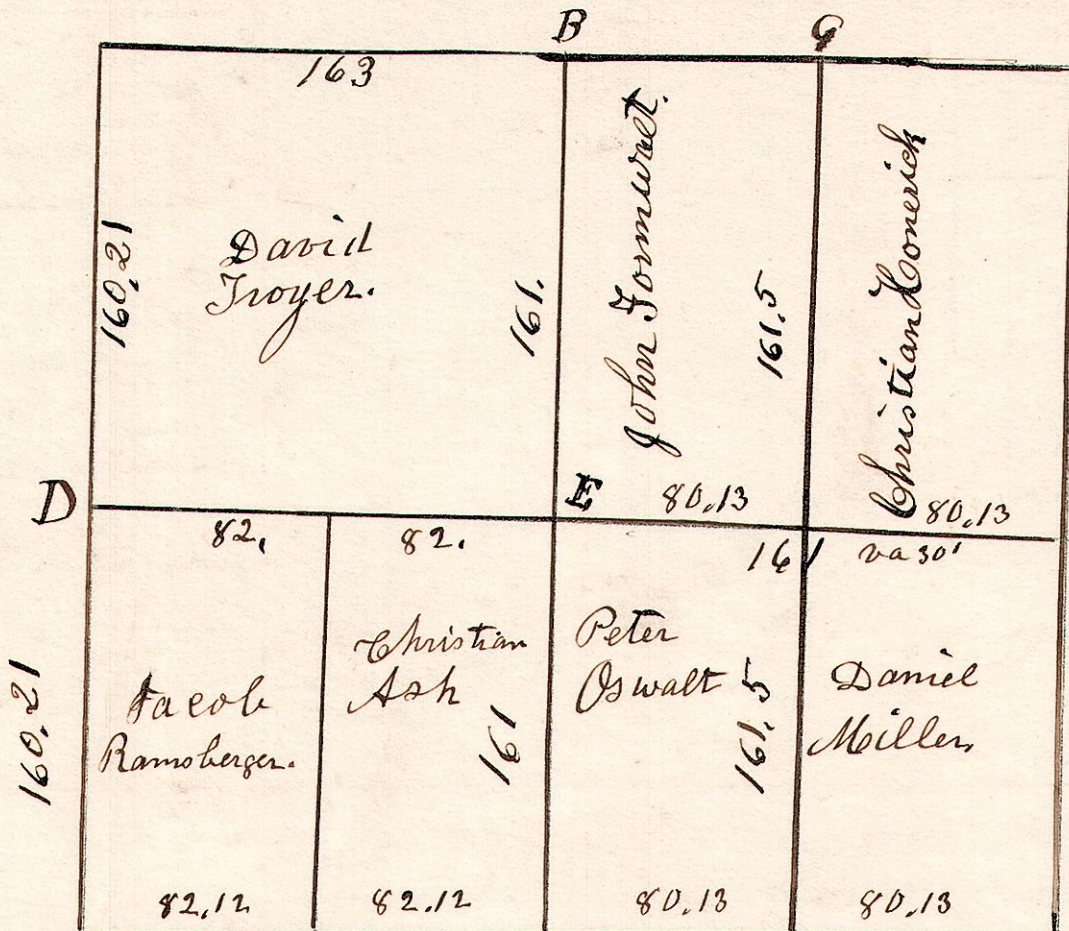 B
G
163
160,21
David
Troyer.
161.
John Fornwret.
161.5
Christian Honerick
D
E
80.13
80.13
82,
82.
161
va 30'
160.21
Jacob
Ramsberger.
Christian
Ash
161
Peter
Oswalt
161.5
Daniel
Miller,
82,12
82.12
80.13
80.13